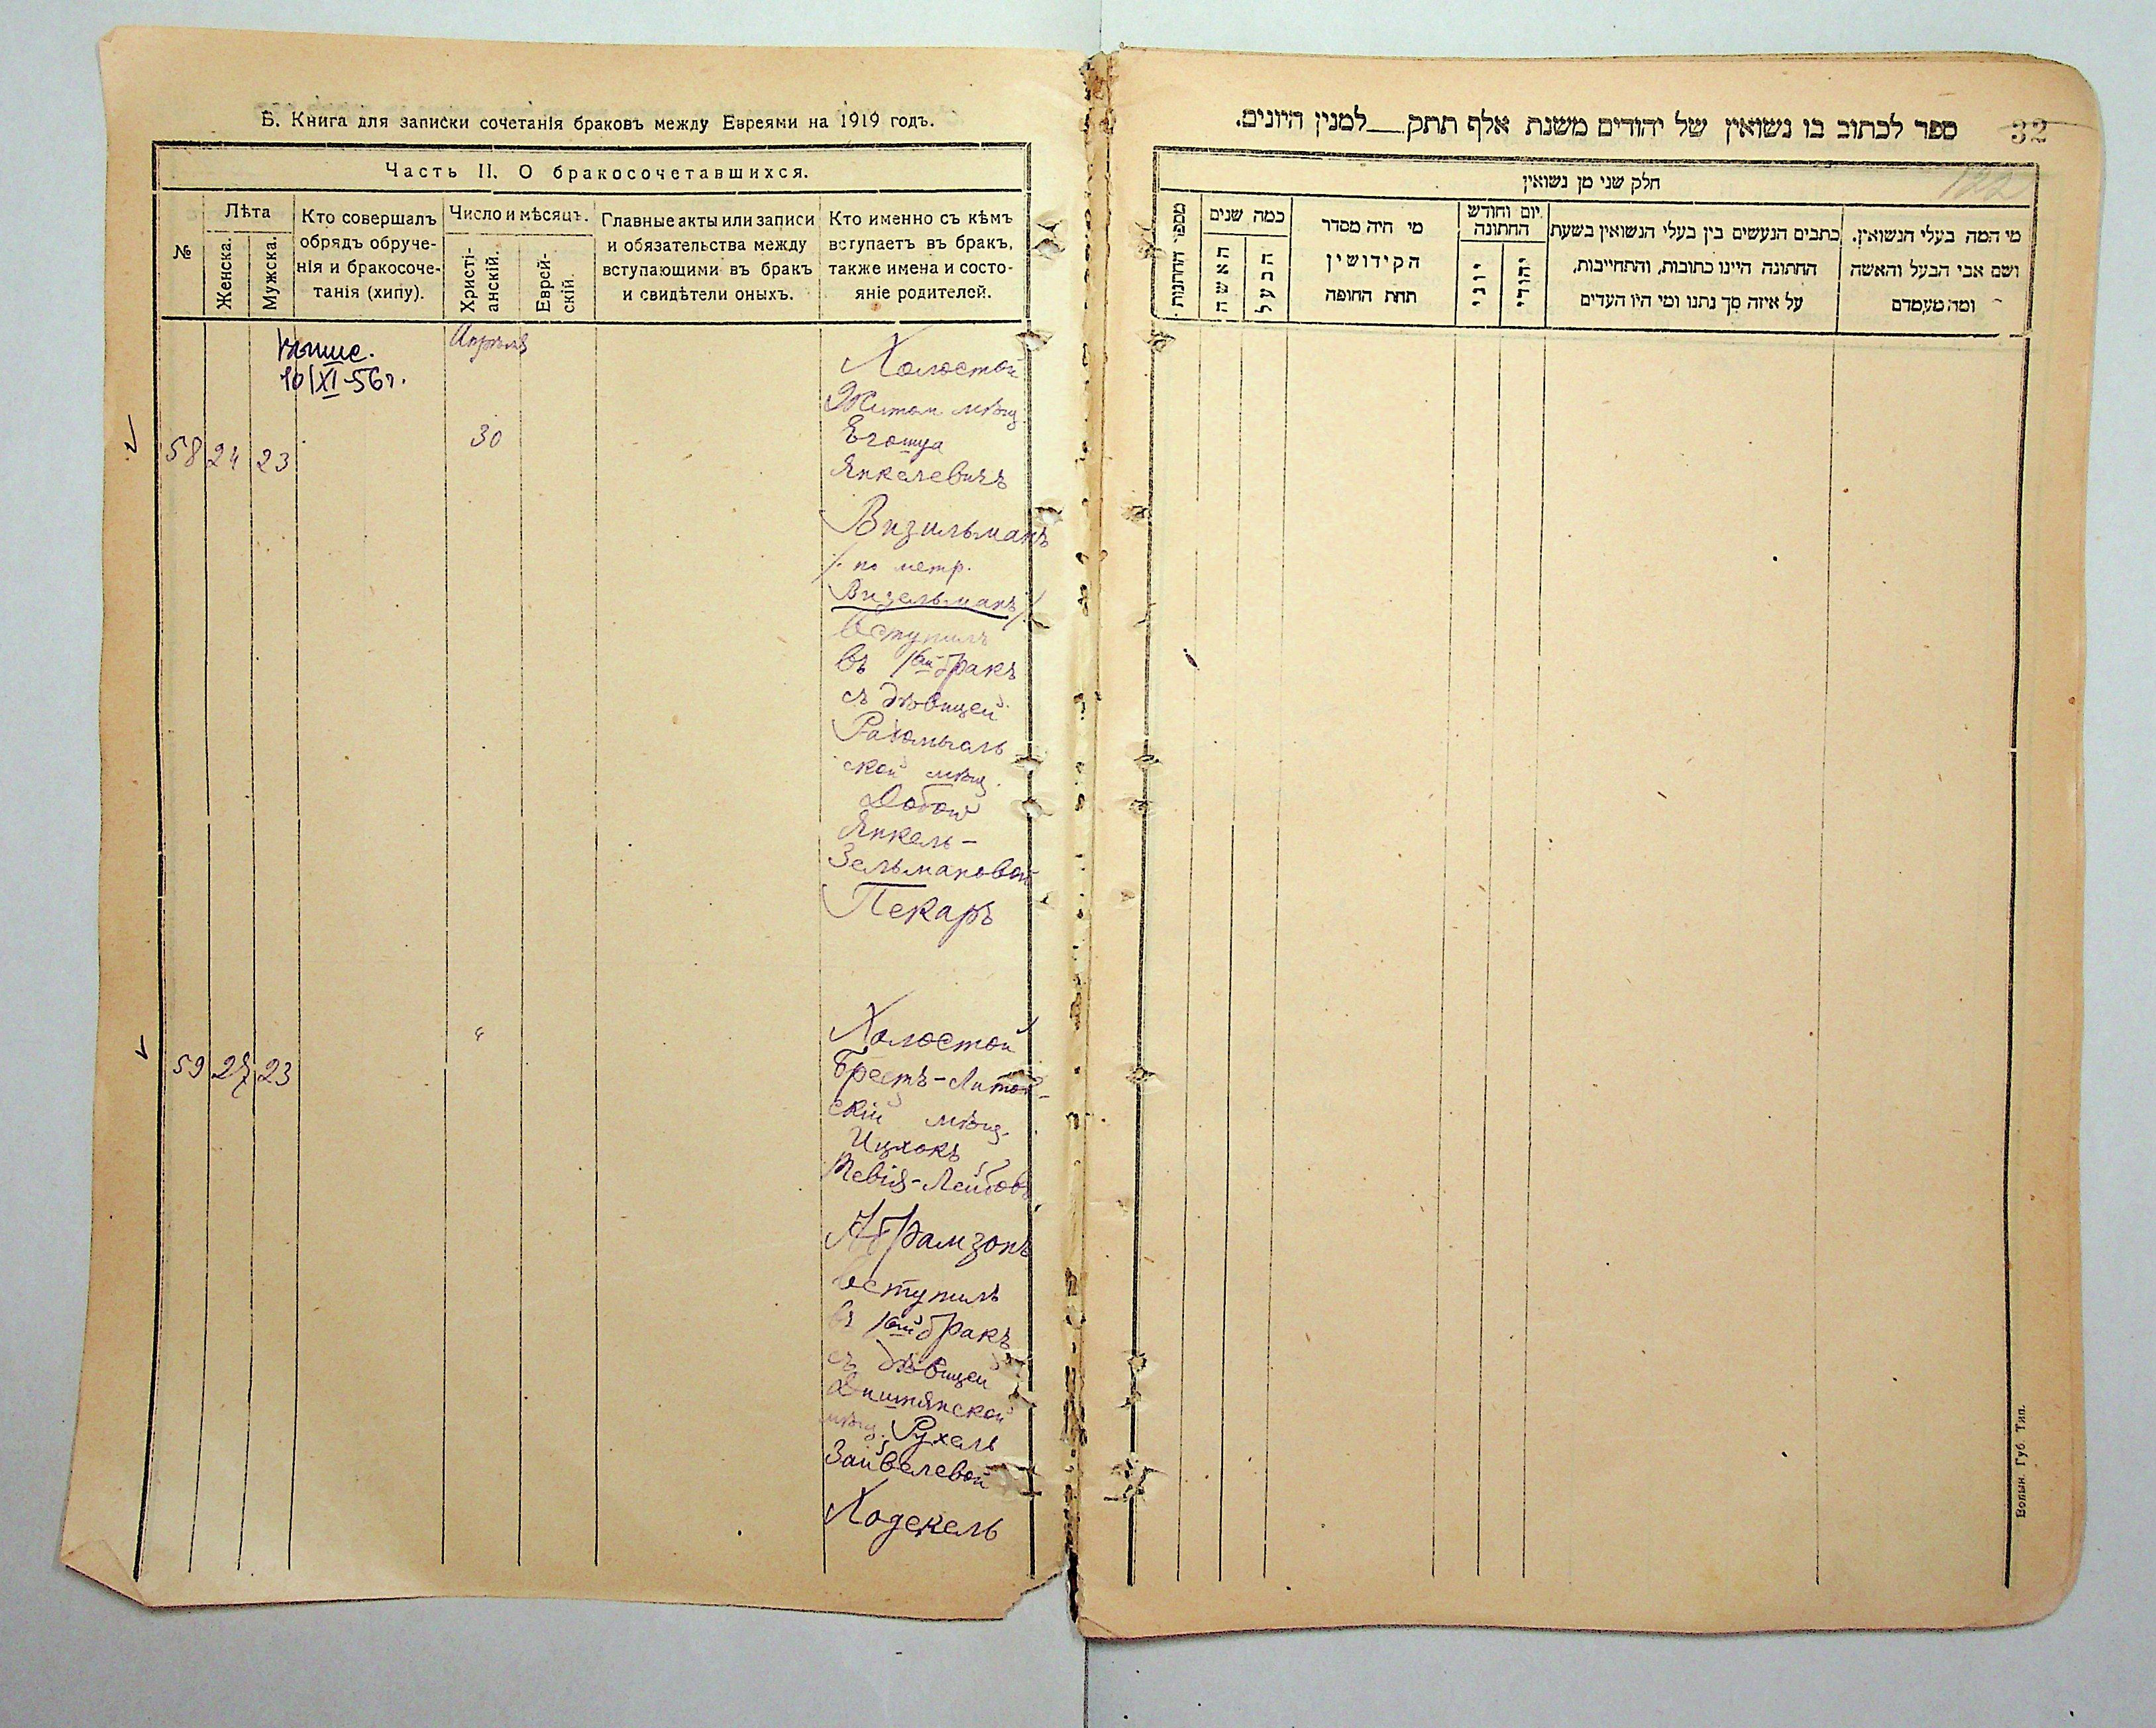 Б. Книга для записки сочетанія браковъ между Евреями на 1919 годъ.
Часть II. О бракосочетавшихся.
№
Лѣта
Женска.
Мужска.
Кто совершалъ
обрядъ обруче-
нія и бракосоче-
танія (хипу).
Число и мѣсяцъ.
Христі-
анскій.
Еврей-
скій.
Главные акты или записи
и обязательства между
вступающими въ бракъ
и свидѣтели оныхъ.
Кто именно съ кѣмъ
вступаетъ въ бракъ,
также имена и состо-
яніе родителей.
10/XI-56г.
Апрѣля
58 24 23
30
Холостой
Житом мѣщ.
Егошуа
Янкелевичъ
Визильманъ
/. по метр.
Визельманъ ./
вступилъ
въ 1ый бракъ
съ дѣвицей
Радомысль
ской мѣщ.
Добой
Янкель-
Зельмановой
Пекаръ
59 27 23
"
Холостой
Брестъ-Литов-
скій мѣщ.
Ицхокъ
Тевія-Лейбовъ
Абрамзонъ
вступилъ
въ 1ый бракъ
съ дѣвицей
мѣщ. Рухель
Зайвелевой
Ходекель
ספר לכתוב בו נשואין של יהודים משנת אלף תתק__למנין היונים.
32
122
חלק שני מן נשואין
מספר החתונות.
כמה שנים
האשה
הבעל
מי היה מסדר
הקידושין
תחת החופה
יום וחודש
החתונה
יוני
יהודי
כתבים הנעשים בין בעלי הנשואין בשעת
החתונה היינו כתובות, והתחייבות,
על איזה סך נתנו ומי היו העדים
מי המה בעלי הנשואין.
ושם אבי הבעל והאשה
ומה מעמדם
Волын. Губ. Тип.